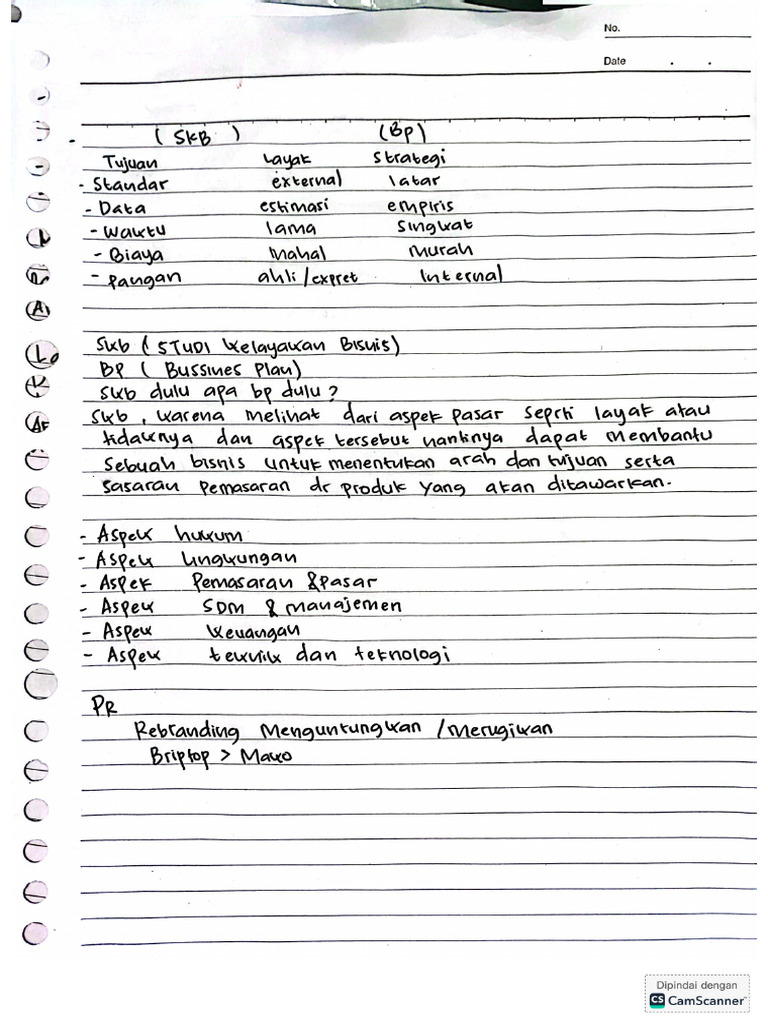 No.
Date . .
- (SKB) (BP)
Tujuan layak strategi
- Standar external latar
- Data estimasi empiris
- Waktu lama Singkat
- Biaya Mahal Murah
- pangan ahli/expret Internal
Skb (STUDI Kelayakan Bisnis)
BP (Bussines Plan)
Skb dulu apa bp dulu?
Skb, karena melihat dari aspek pasar seprti layak atau
tidaknya dan aspek tersebut nantinya dapat membantu
Sebuah bisnis untuk menentukan arah dan tujuan serta
sasaran pemasaran dr produk yang akan ditawarkan.
- Aspek hukum
- Aspek lingkungan
- Aspek Pemasaran & pasar
- Aspek SDM & manajemen
- Aspek keuangan
- Aspek teknik dan teknologi
PR
Rebranding Menguntungkan / Merugikan
> Mako
Dipindai dengan
CS CamScanner